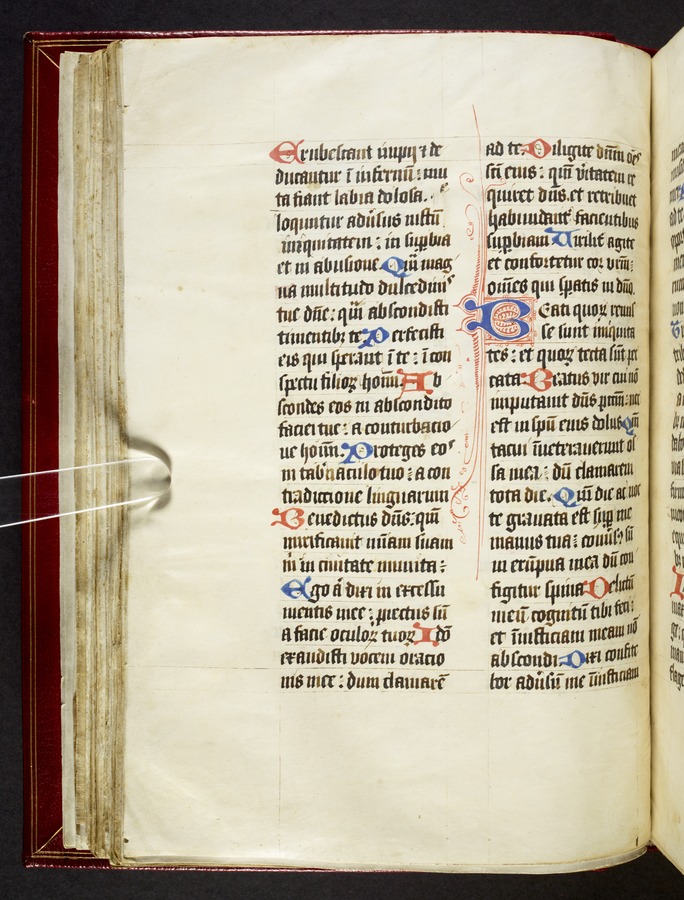 Erubescant impij ⁊ de
ducantur ī infernū: mu
ta fiant labia dolosa.
loquntur adūsus iustū
iniquitatem: in supbia
et in abusione. Qm̄ mag
na multitudo dulcedinis
tue dn̄e: quā abscondisti
timentibꝫ te. Perfecisti
eis qui sperant ī te: ī con
spectu filioꝝ hoīm. Ab
scondes eos in abscondito
faciei tue: a conturbacio
ne hoīm. Proteges eos
in tab̾naculo tuo: a con
tradictione linguarum
Benedictus dn̄s: qm̄
mirificauit mīam suam
m̄ in ciuitate munita:
Ego ā dixi in excessu
mentis mee: ꝓiectus sū
a facie oculoꝝ tuoꝝ. Idō
exaudisti vocem oracio
nis mee: dum clamarē
ad te. Diligite dn̄m oēs
scī eius: qm̄ v̾itatem re
quiret dn̄s. et retribuet
habundant̾ facientibus
supbiam. Uirilit̾ agite
et confortetur cor vr̄m:
om̄es qui speratis in dn̄o.
Beati quoꝝ remis
se sunt iniquita
tes: et quoꝝ tecta sūt pec
cata. Beatus vir cui nō
imputauit dn̄s pctm̄: nec
est in spū eius dolus. Qm̄
tacui īueterauerunt os
sa mea: dū clamarem
tota die. Qm̄ die ac noc
te grauata est sup me
manus tua: conūsꝰ sū
in erūpna mea dū con
figitur spina. Delictū
meū cognitū tibi feci:
et īiusticiam meam nō
abscondi. Dixi confite
bor adūsū me īiusticiam